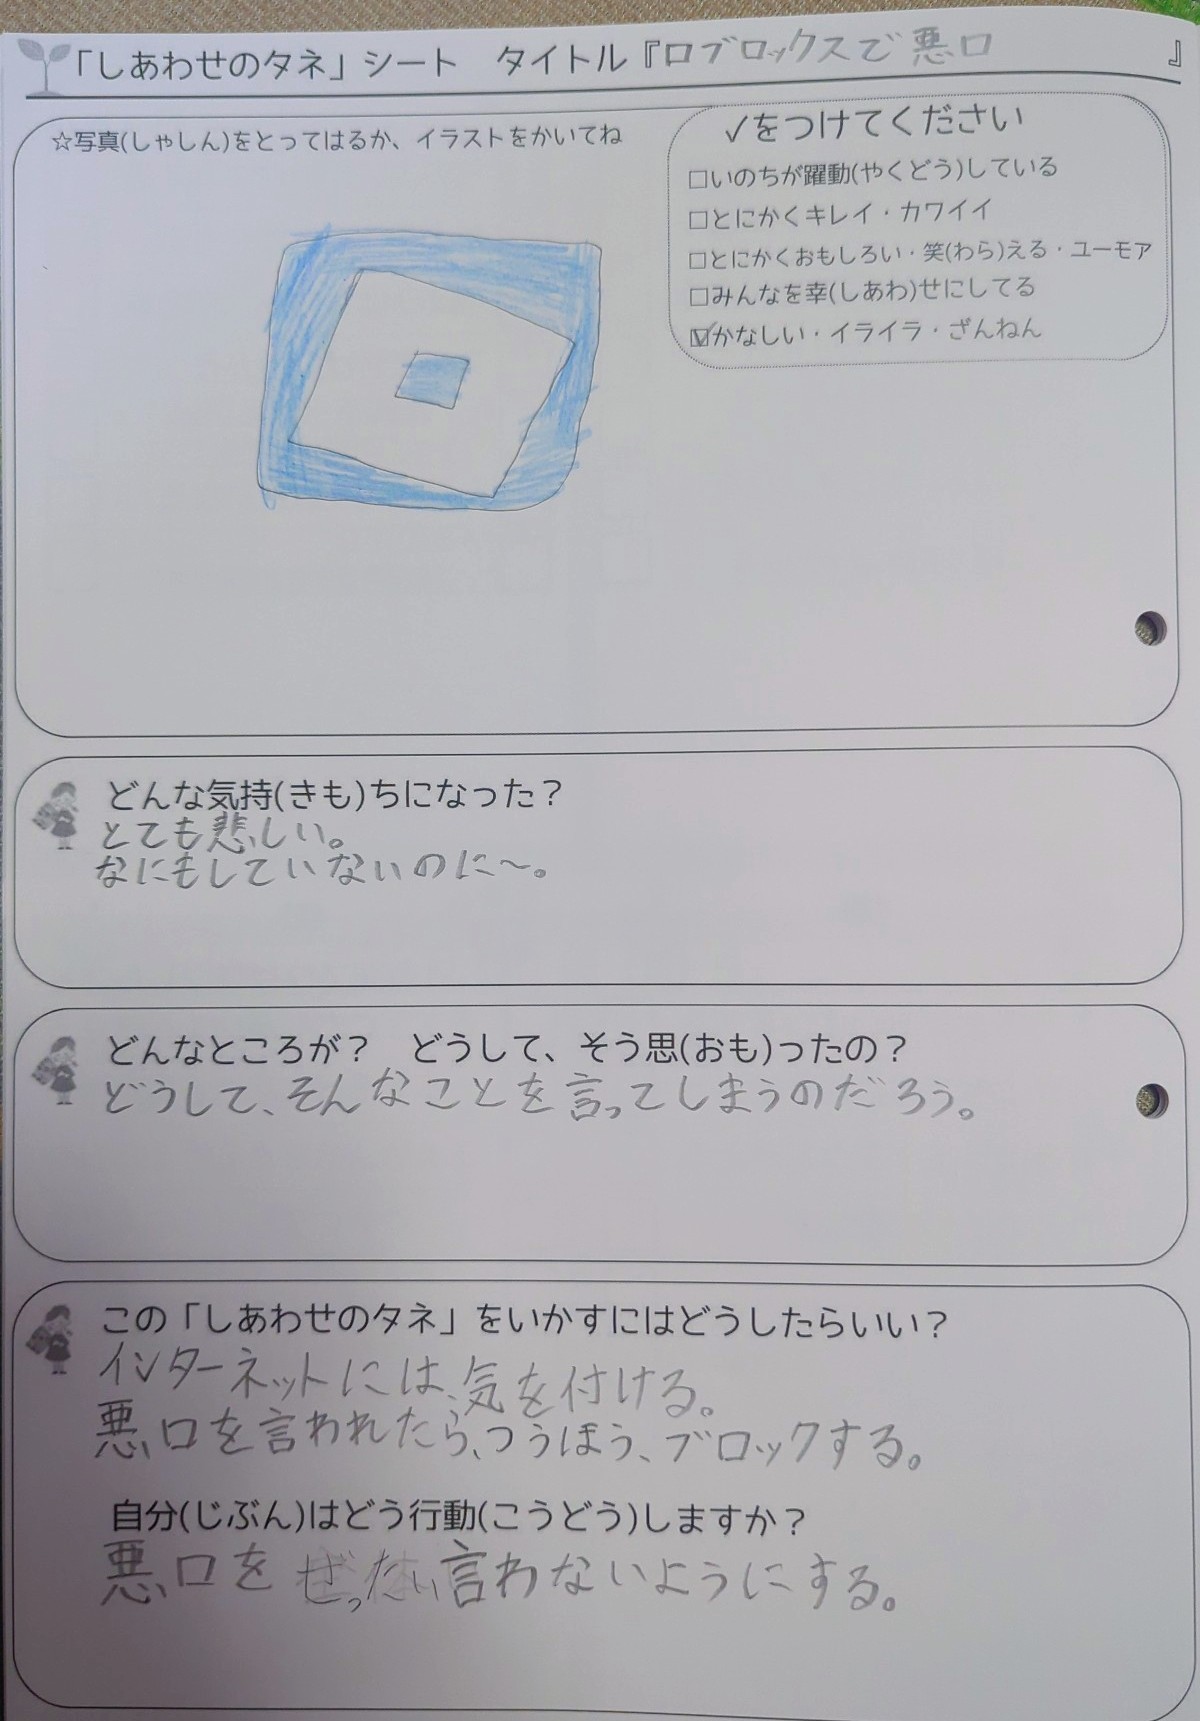 「しあわせのタネ」シート　タイトル『ロブロックスで悪口』
☆写真(しゃしん)をとってはるか、イラストをかいてね
✓をつけてください
□いのちが躍動(やくどう)している
□とにかくキレイ・カワイイ
□とにかくおもしろい・笑(わら)える・ユーモア
□みんなを幸(しあわ)せにしてる
☑かなしい・イライラ・ざんねん
どんな気持(きも)ちになった？
とても悲しい。
なにもしていないのに〜。
どんなところが？　どうして、そう思(おも)ったの？
どうして、そんなことを言ってしまうのだろう。
この「しあわせのタネ」をいかすにはどうしたらいい？
インターネットには、気を付ける。
悪口を言われたら、つうほう、ブロックする。
自分(じぶん)はどう行動(こうどう)しますか？
悪口をぜったい言わないようにする。